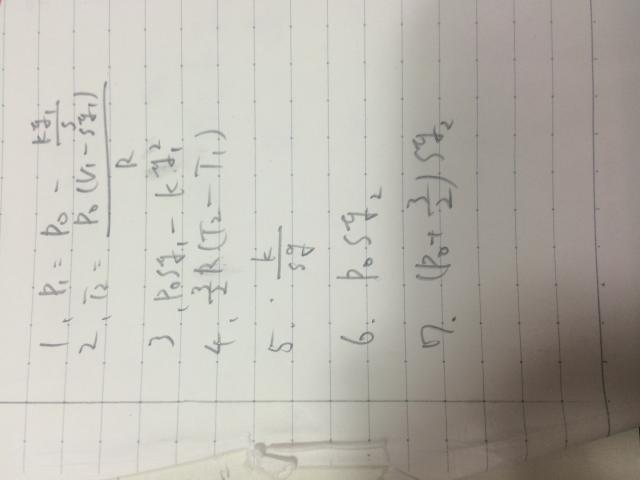 1. P₁ = P₀ - ky₁/S
2. T₂ = P₀(V₁-Sy₁)/R
3. P₀Sy₁ - ky₁²
4. 3/2 R(T₂-T₁)
5. k/Sy
6. P₀Sy₂
7. (P₀+3/2)Sy₂